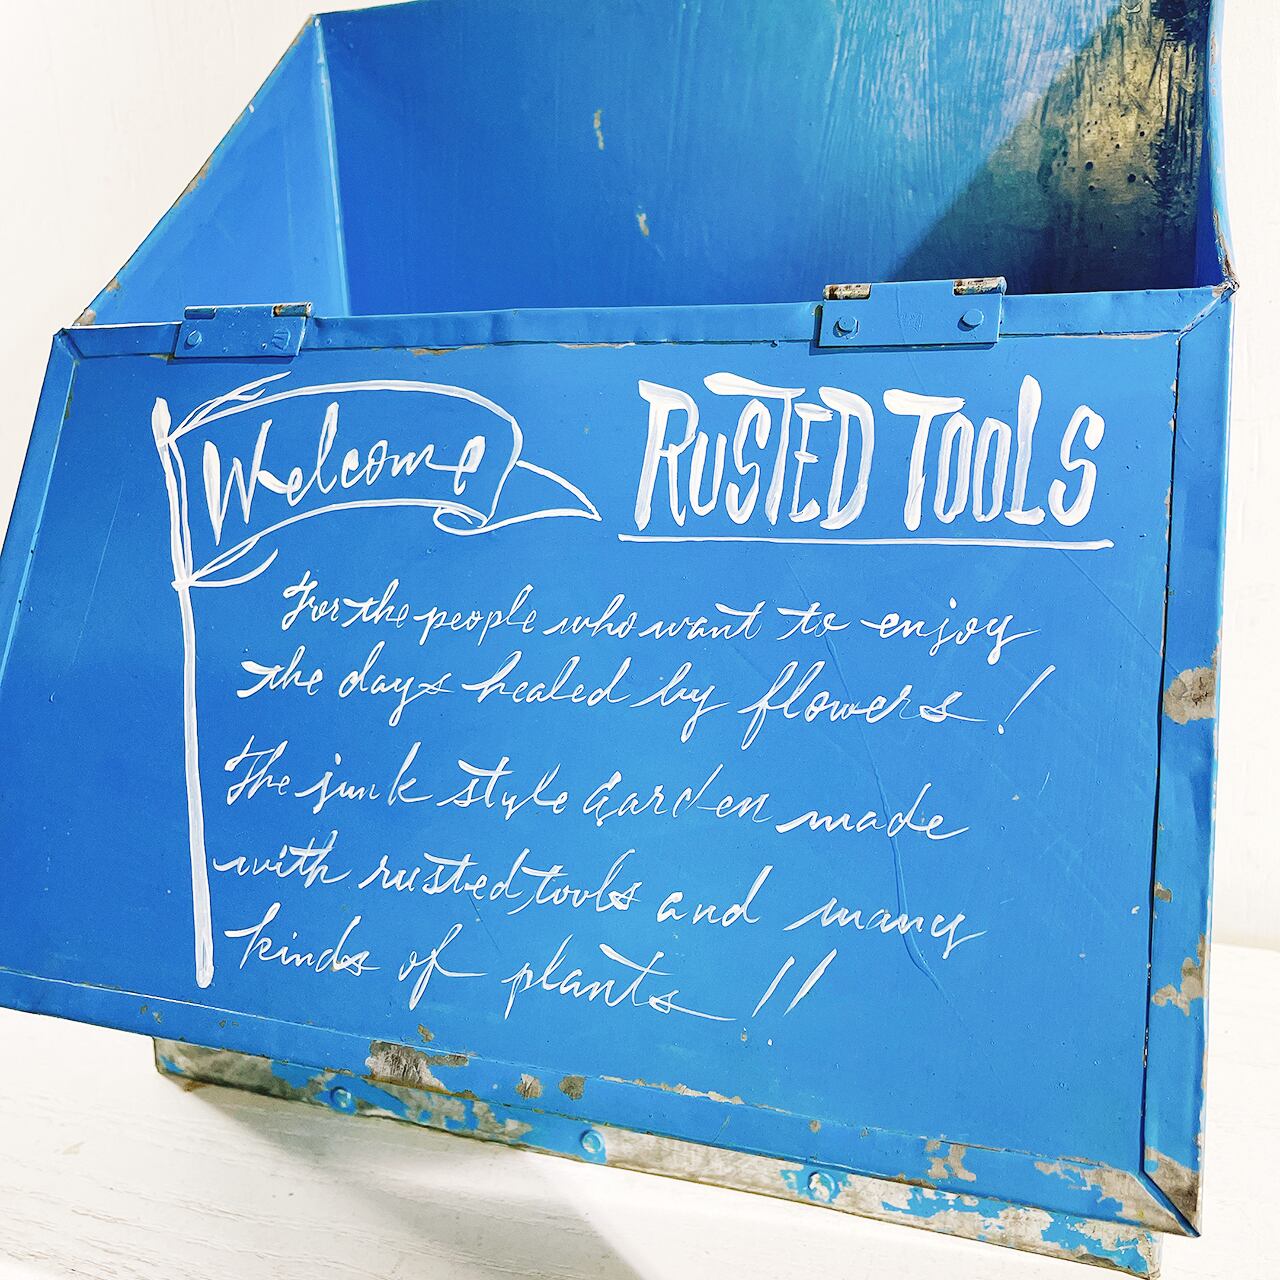 Welcome
RUSTED TOOLS
For the people who want to enjoy
the days healed by flowers!
The junk style Garden made
with rusted tools and many
kinds of plants!!